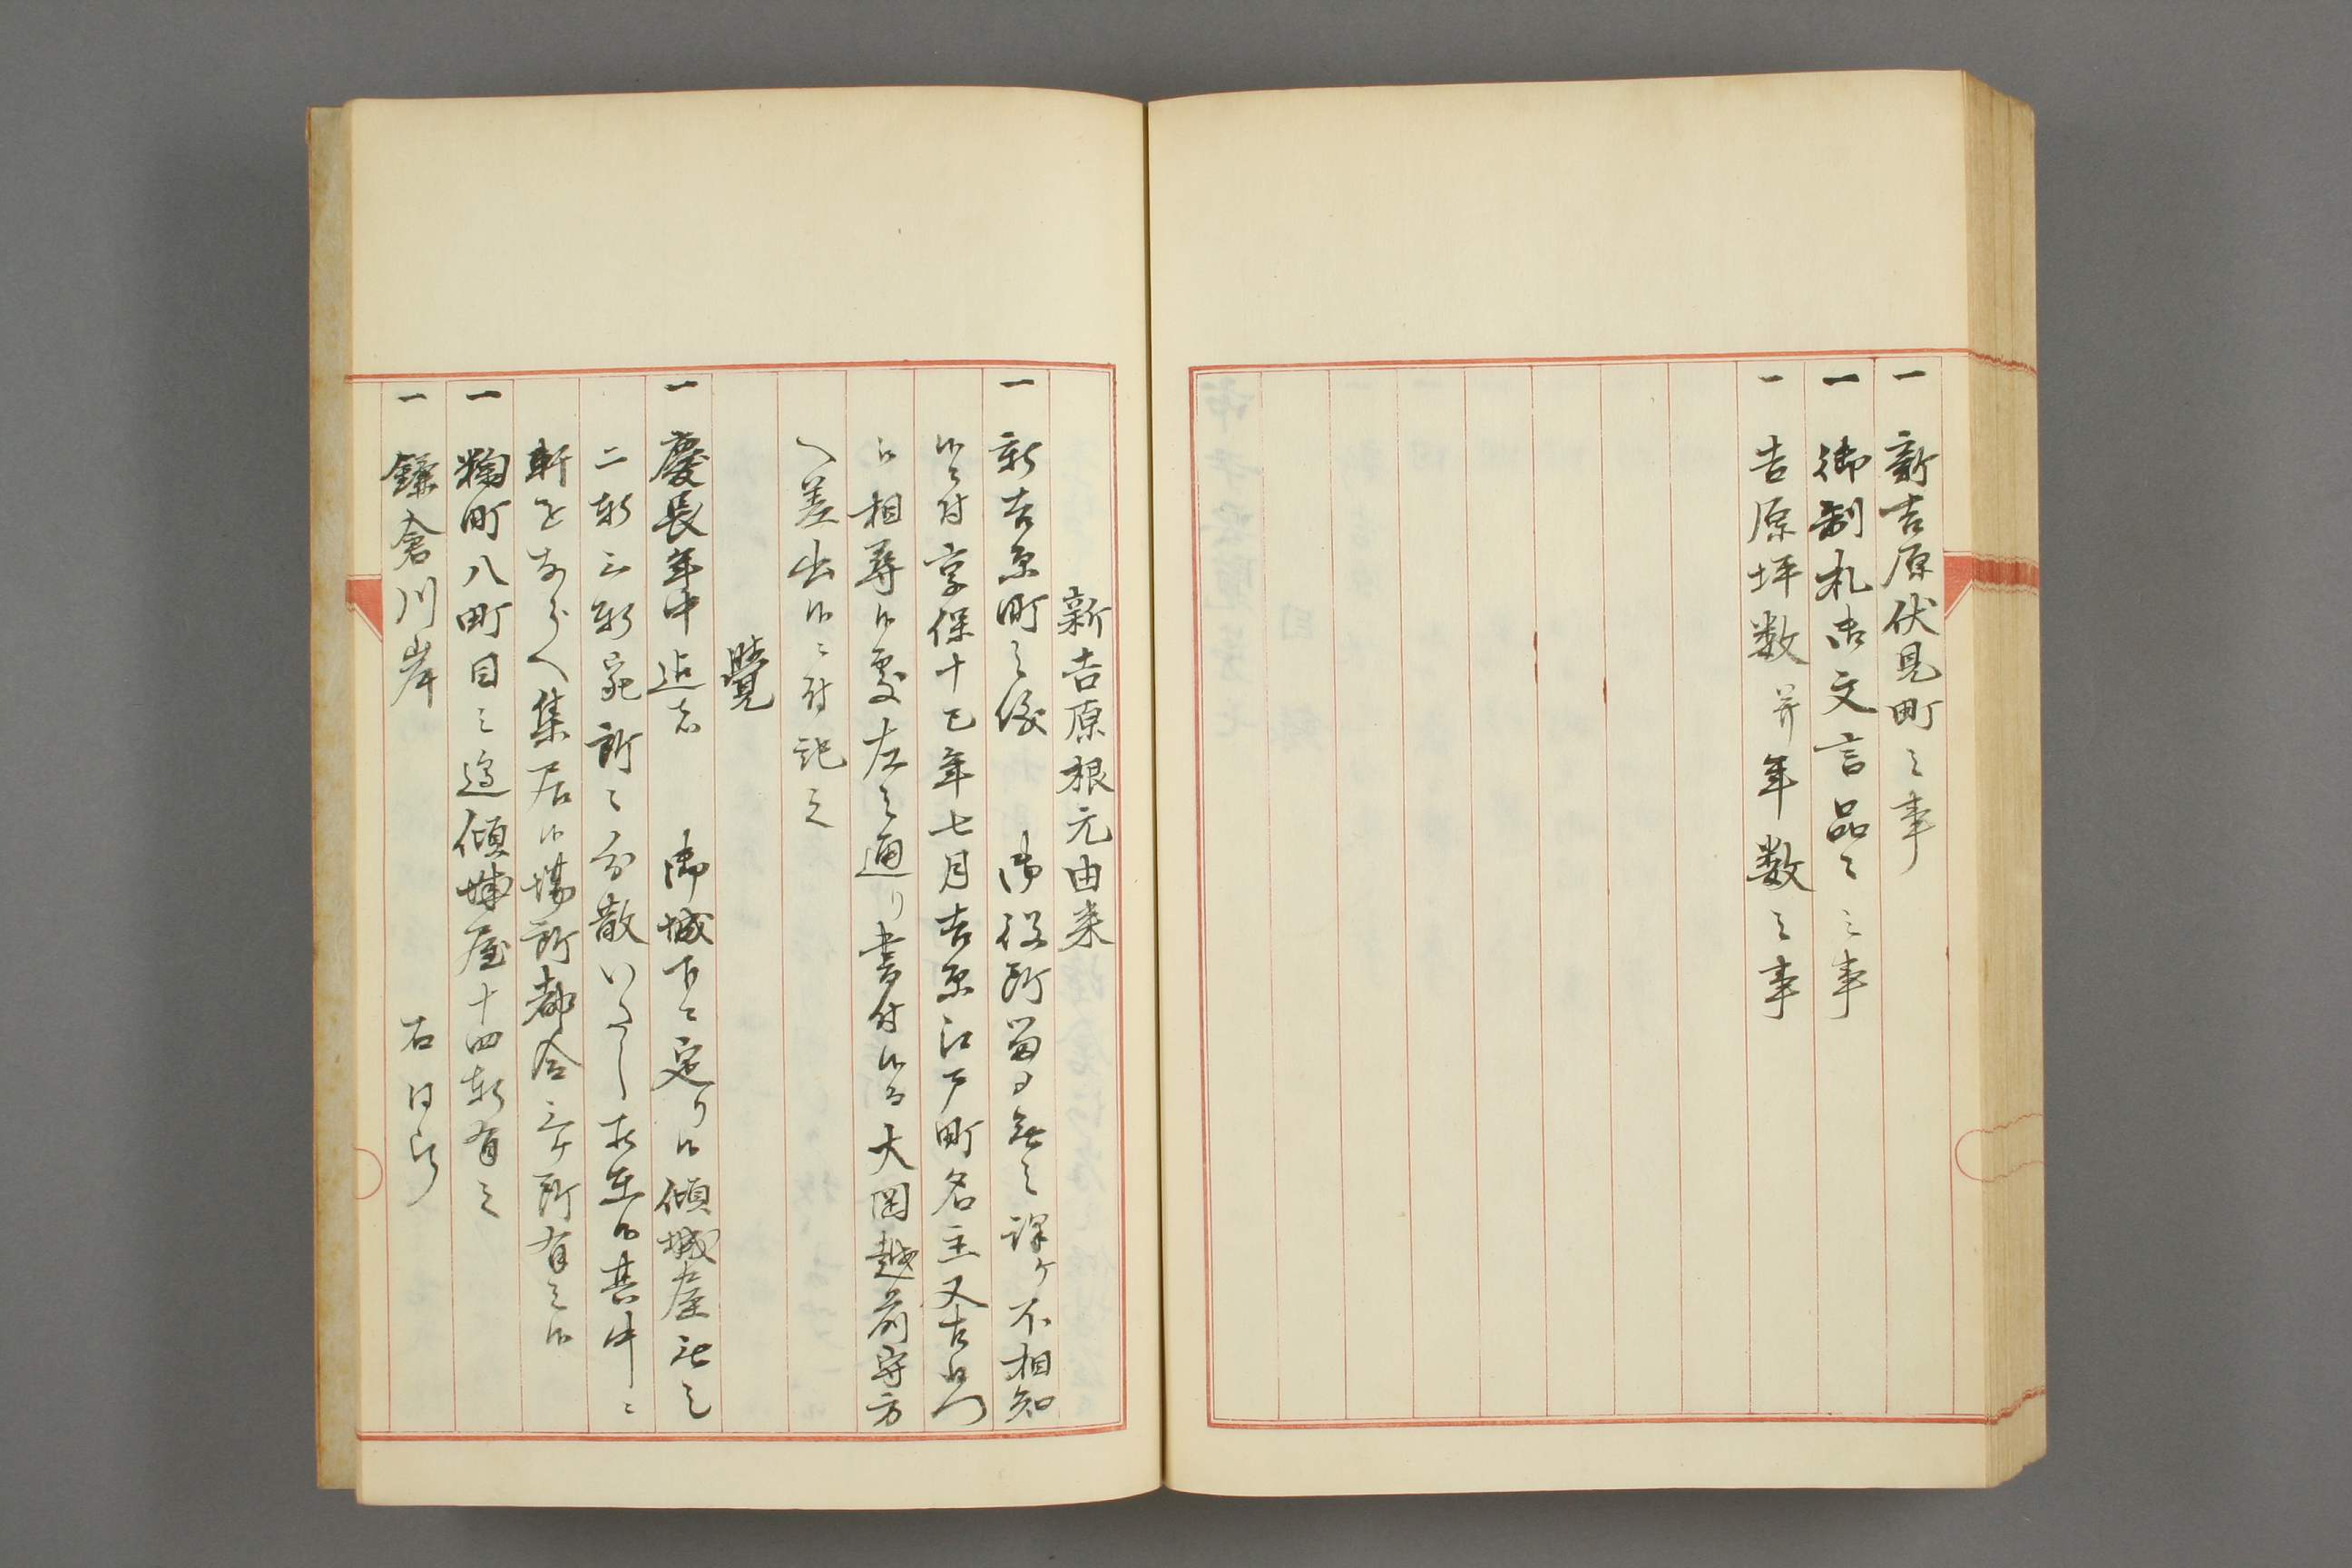 一 新吉原伏見町之事
一 御制札御文言品々之事
一 吉原坪数并年数之事
新吉原根元由来
一 新吉原町之儀 御役所留ニ無之訳ケ不相知
候ニ付享保十巳年七月吉原江戸町名主又左衛門
江相尋候処左之通り書付候而大岡越前守方
へ差出候ニ付記之
覚
一 慶長年中迄者 御城下ニ定り候傾城屋無之
二軒三軒宛所々分散いたし於在候其中ニ
軒をならへ集居候場所都合三ケ所有之候
一 麹町八町目之邉傾城屋十四軒有之
一 鎌倉川岸 右同断